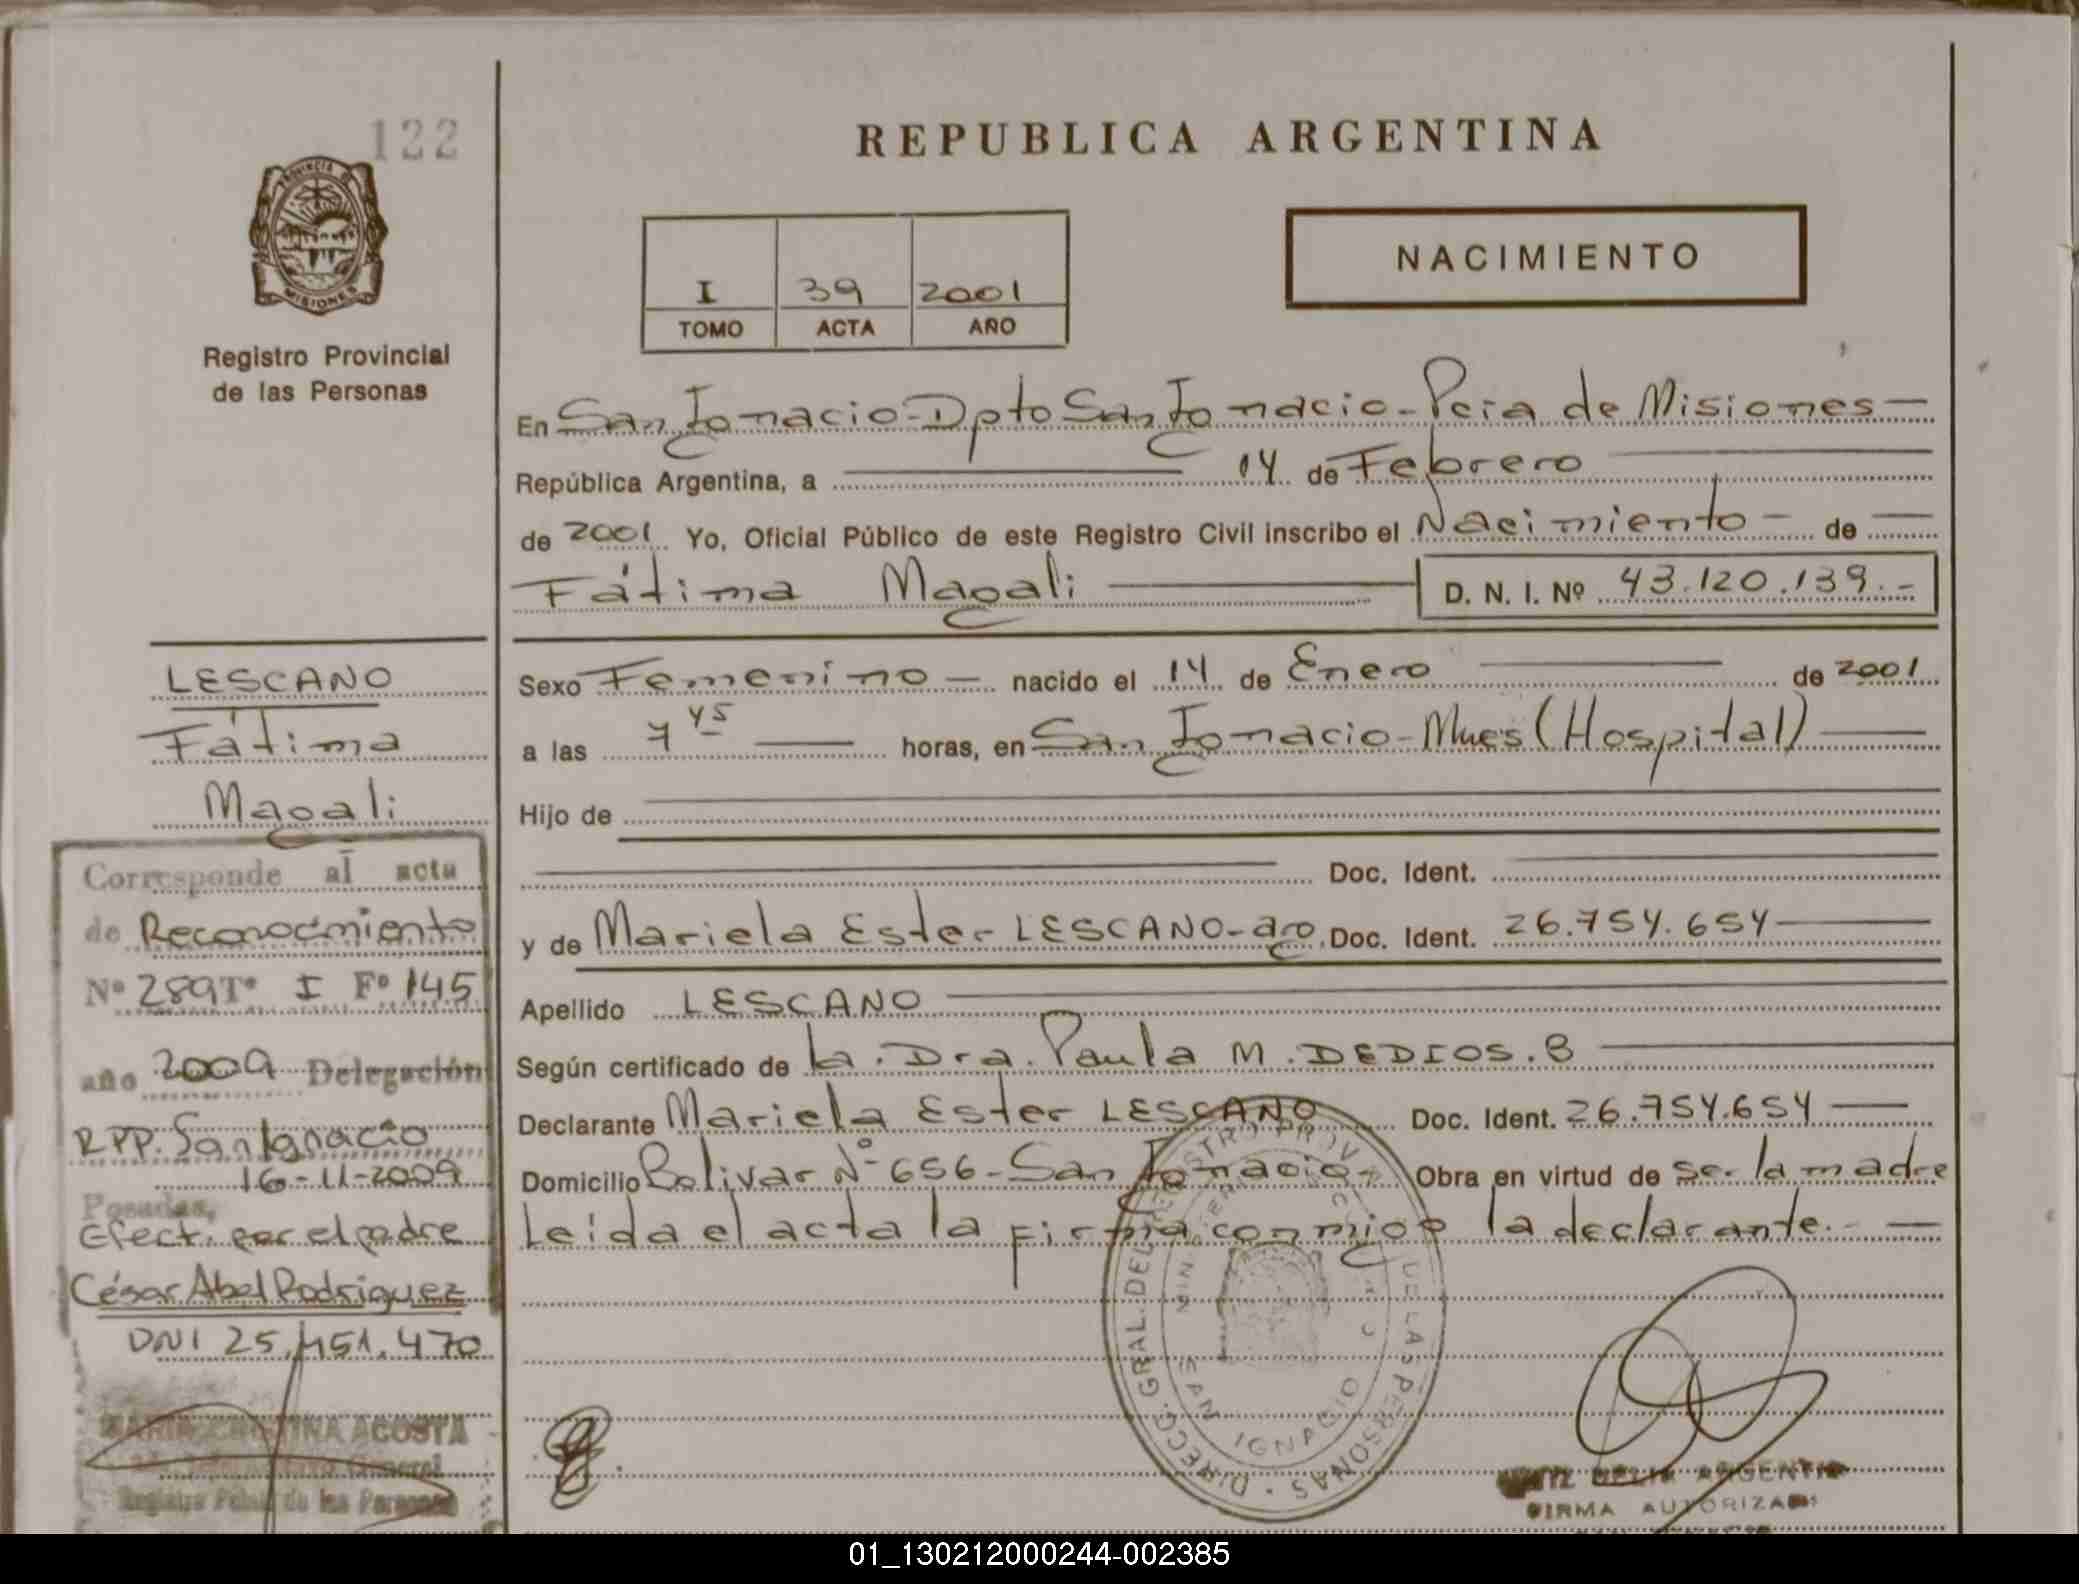 122
PROVINCIA DE
MISIONES
Registro Provincial
de las Personas
REPUBLICA ARGENTINA
I 39 2001
TOMO ACTA AÑO
NACIMIENTO
En San Ignacio - Dpto San Ignacio - Pcia de Misiones -
República Argentina, a 14 de Febrero
de 2001 Yo, Oficial Público de este Registro Civil inscribo el Nacimiento - de
Fátima Magali D. N. I. Nº 43.120.139.-
Sexo Femenino - nacido el 14 de Enero de 2001
a las 7 45 horas, en San Ignacio - Mnes (Hospital)
Hijo de
Doc. Ident.
y de Mariela Ester LESCANO - arg. Doc. Ident. 26.754.654
Apellido LESCANO
Según certificado de la. Dra. Paula M. DEDIOS. B
Declarante Mariela Ester LESCANO Doc. Ident. 26.754.654
Domicilio Bolivar Nº 656 - San Ignacio - Obra en virtud de ser la madre
Leida el acta la firma conmigo la declarante. -
LESCANO
Fátima
Magali
Corresponde al acta
de Reconocimiento
Nº 289 Tº I Fº 145
año 2009 Delegación
RPP. San Ignacio
16-11-2009
Posadas,
Efect. por el padre
César Abel Rodriguez
DNI 25.451.470
MARIA CRISTINA ACOSTA
Registro Pcial. de las Personas
DIRECC. GRAL. DEL REGISTRO PROV. DE LAS PERSONAS
SAN IGNACIO
FIRMA AUTORIZADA
01_130212000244-002385